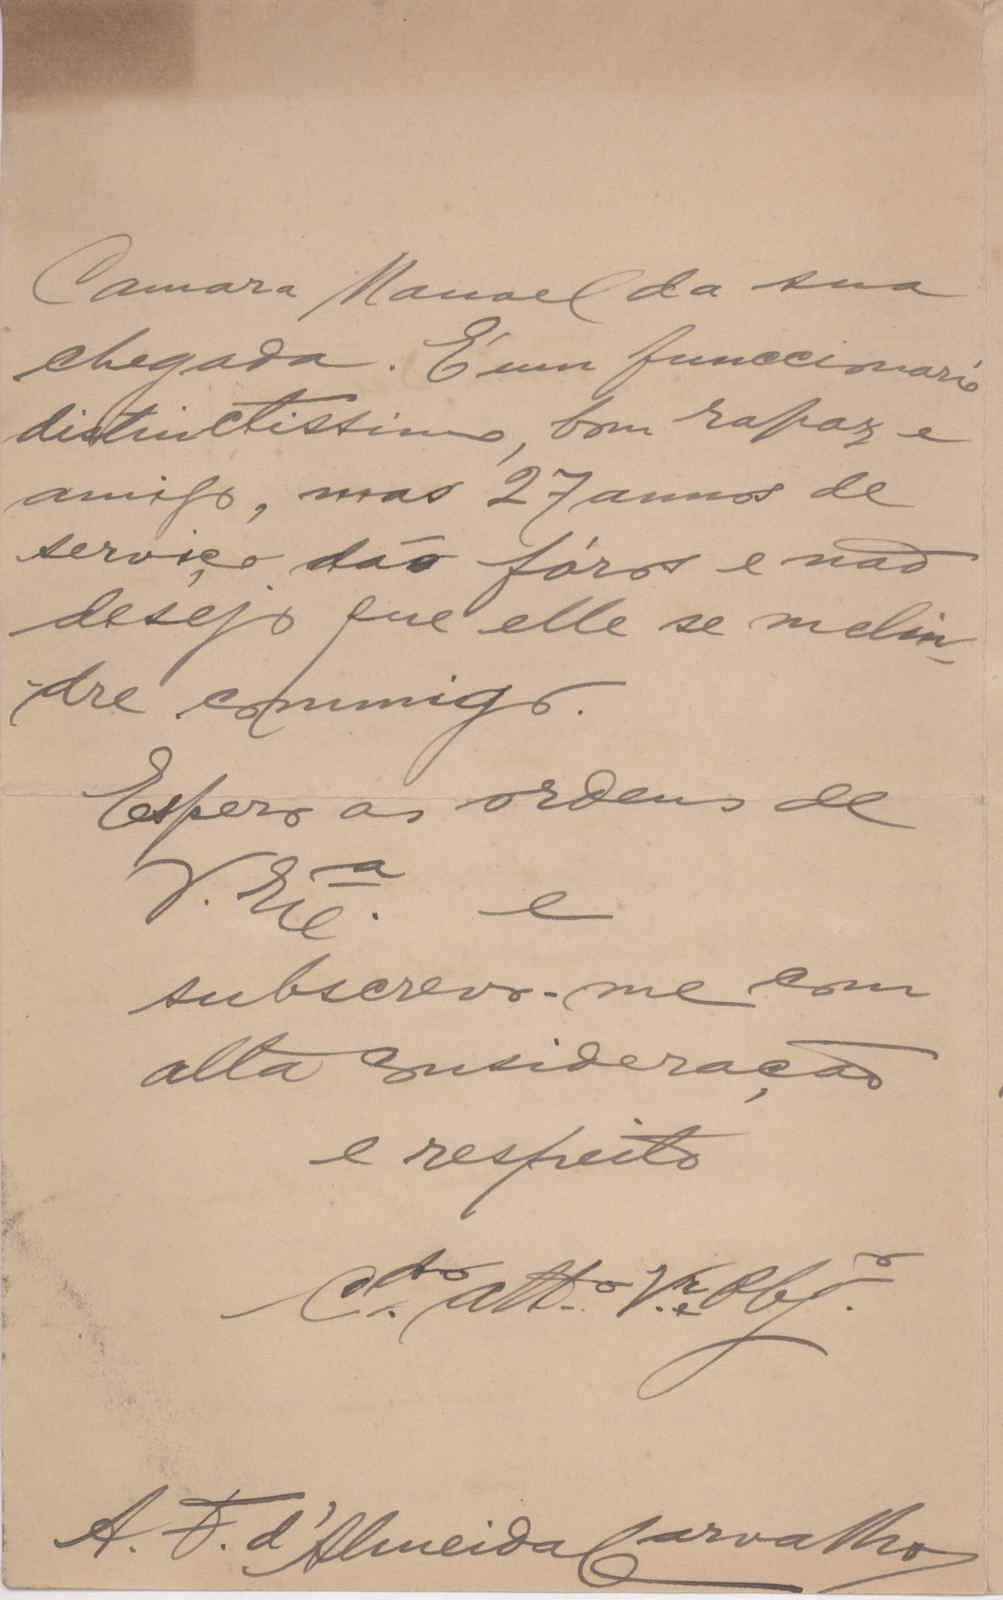 Camara Manoel da sua
chegada. É um funccionario
distinctissimo, bom rapaz e
amigo, mas 27 annos de
serviço dão fóros e não
desejo que elle se melin-
-dre commigo.
Espero as ordens de
V. Exc.ª e
subscrevo-me com
alta consideração
e respeito
C.do att.o V.e Obg.o
A. F. d'Almeida Carvalho